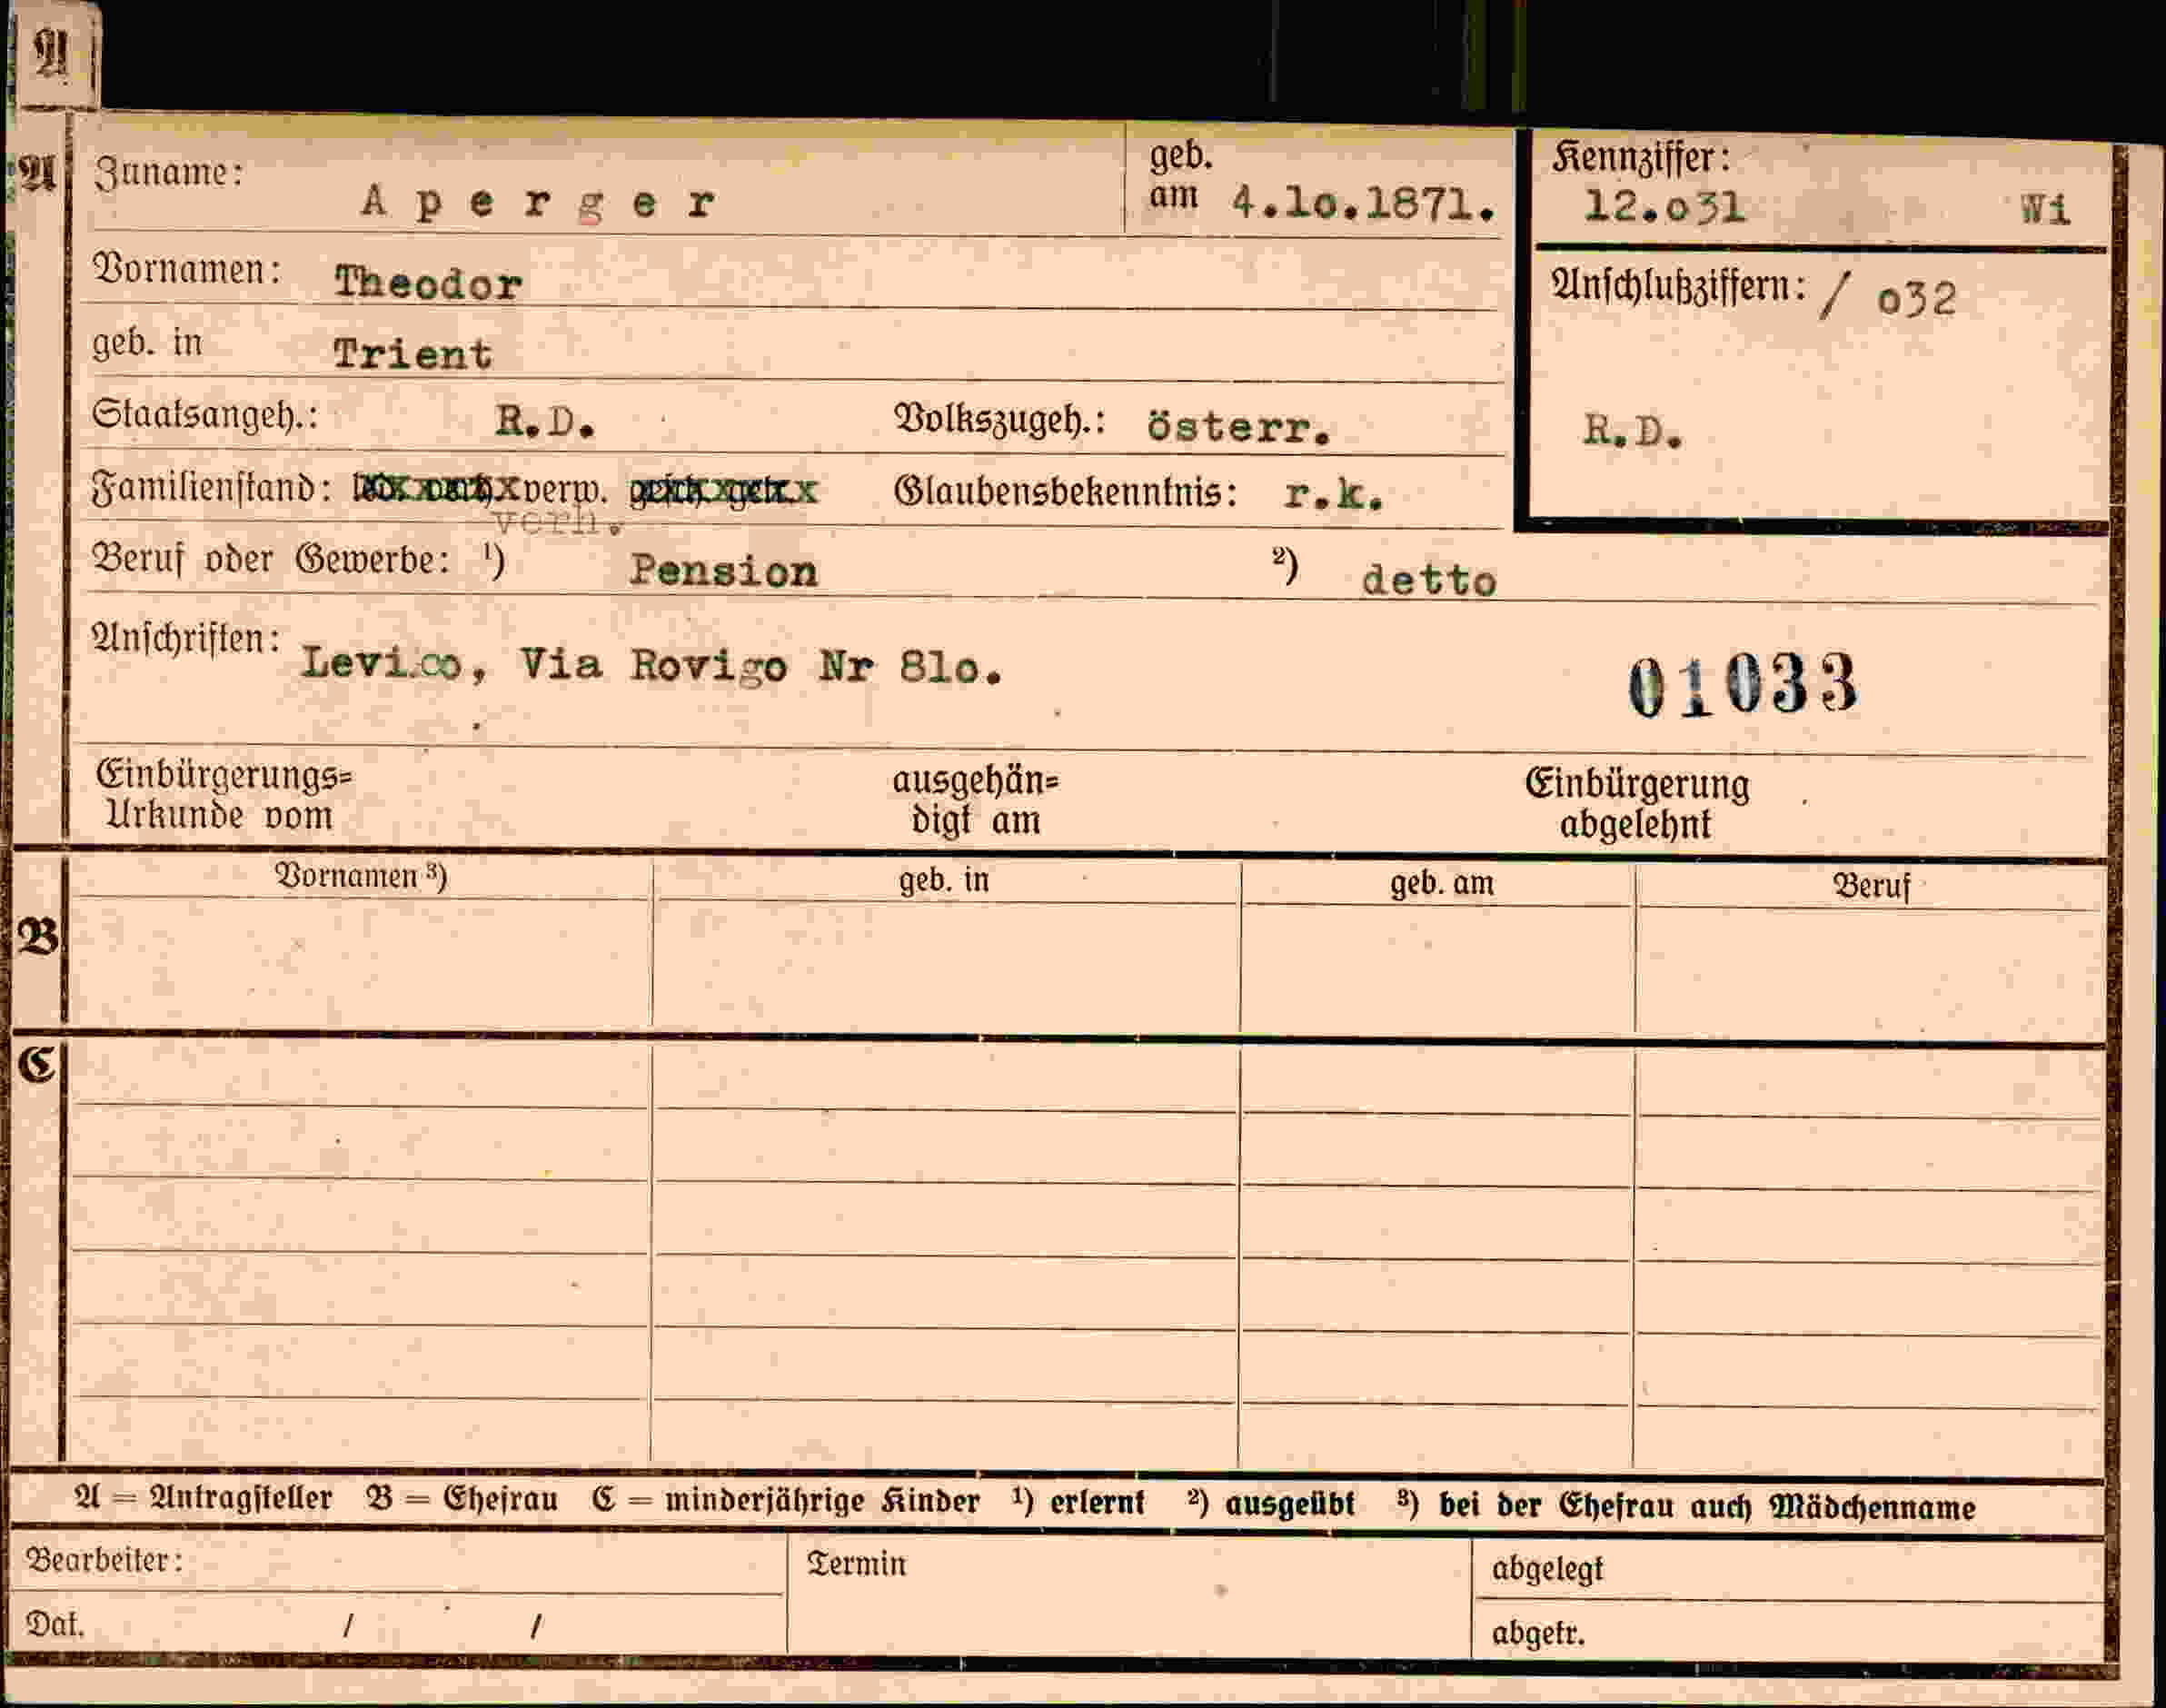 A
A
Zuname: Aperger
geb.
am 4.10.1871.
Kennziffer:
12.031 Wi
Vornamen: Theodor
Anschlußziffern: / 032
geb. in Trient
Staatsangeh.: R.D. Volkszugeh.: österr.
R.D.
Familienstand: verw. Glaubensbekenntnis: r.k.
verh.
Beruf oder Gewerbe: ¹) Pension ²) detto
Anschriften: Levico, Via Rovigo Nr 810.
01033
Einbürgerungs=
Urkunde vom
ausgehän=
digt am
Einbürgerung
abgelehnt
Vornamen ³) geb. in geb. am Beruf
B
C
A = Antragsteller B = Ehefrau C = minderjährige Kinder ¹) erlernt ²) ausgeübt ³) bei der Ehefrau auch Mädchenname
Bearbeiter: Termin abgelegt
Dat. / / abgetr.